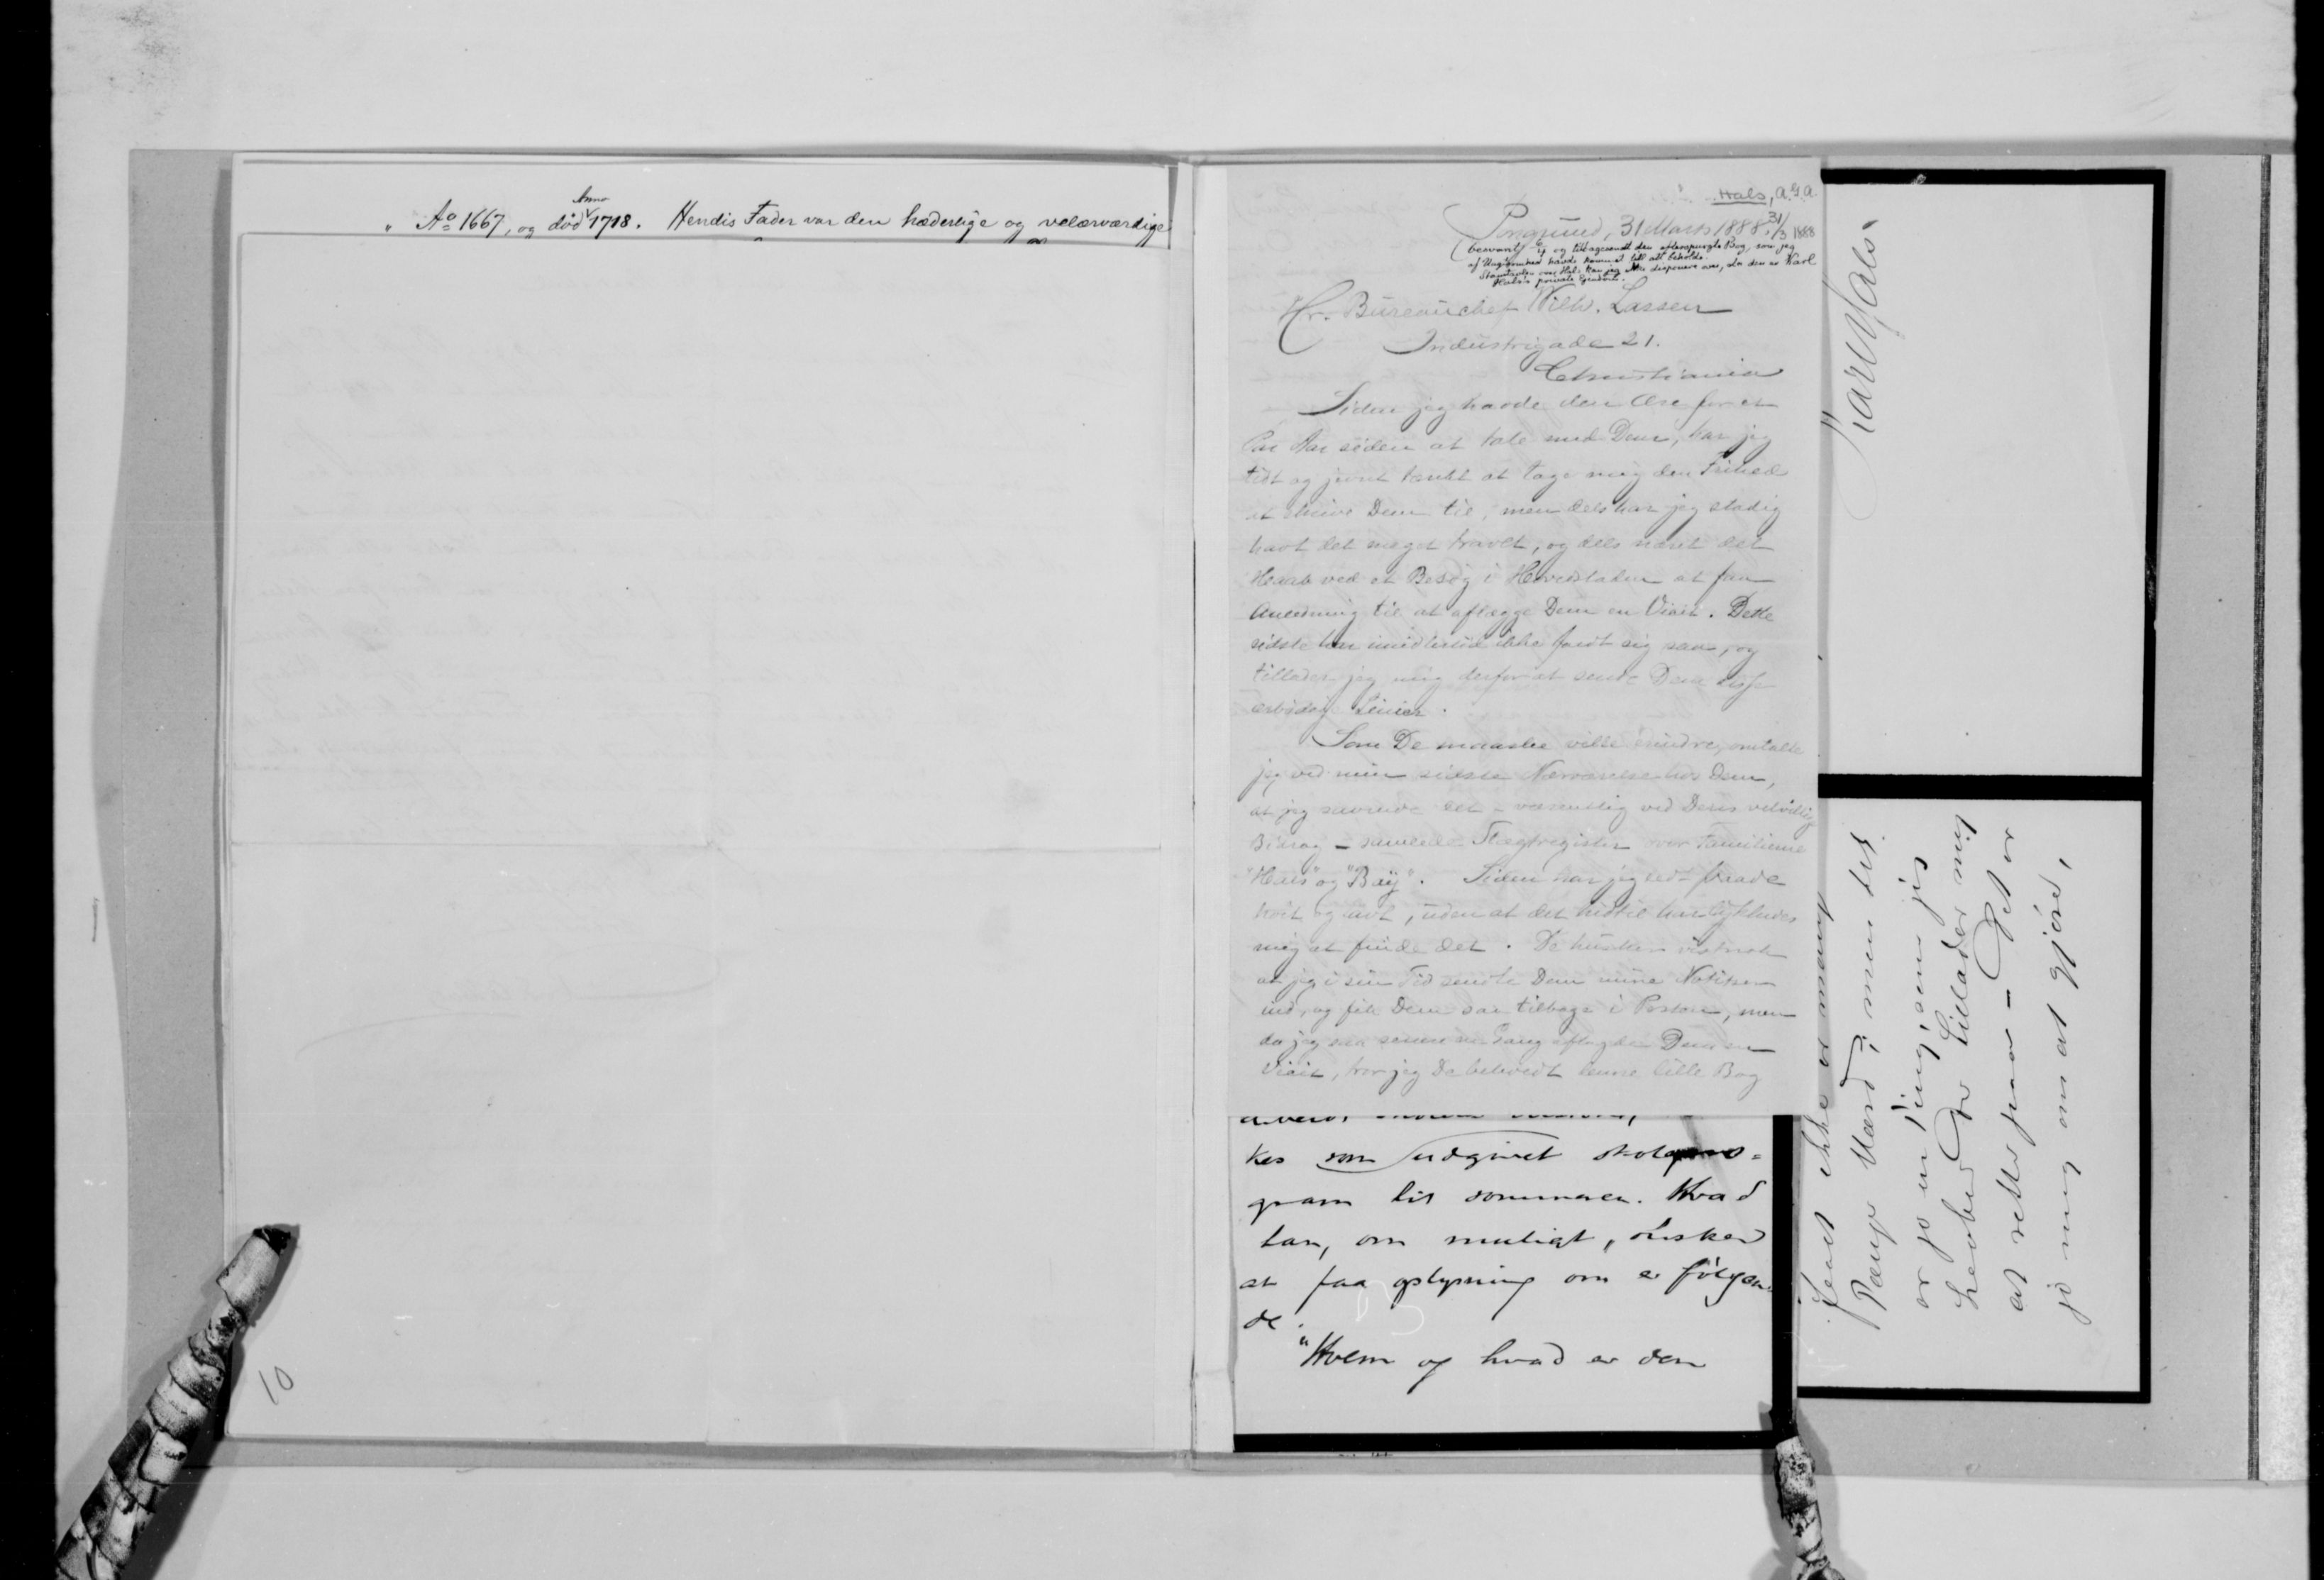 Anno
Ao 1667, og død 1718. Hendis Fader var den hæderlige og velærværdige
10
Hals, A. G. A.
Porsgrund, 31 Marts 1888. 31/3 1888
besvaret og tilbagesendt den efterspurgte Bog, som jeg
af Uagtsomhed havde kommet till att beholde.
Stamtavlen over Hals kan jeg ikke disponere over, da den er Karl
Hals's private Eiendom.
Hr. Bureauchef Wilh. Lassen
Industrigade 21.
Christiania
Siden jeg havde den Ære for et
Par Aar siden at tale med Dem, har jeg
tidt og jevnt tænkt at tage mig den Frihed
at skrive Dem til, men dels har jeg stadig
havt det meget travlt, og dels næret det
Haab ved et Besøg i Hovedstaden at faa
Anledning til at aflægge Dem en Visit. Dette
sidste har imidlertid ikke føiet sig saa, og
tillader jeg mig derfor at sende Dem disse
ærbødige Linier.
Som De maaske ville erindre, omtalte
jeg ved min sidste Nærværelse hos Dem,
at jeg savnede det - væsentlig ved Deres velvillig
Bidrag - samlede Slægtregister over Familierne
"Hals" og "Baÿ". Siden har jeg ledt baade
høit og lavt, uden at det hidtil har lykkedes
mig at finde det. De husker vistnok
at jeg i sin Tid sendte Dem mine Notitser
ind, og fik Dem saa tilbage i Posten, men
da jeg saa senere en Gang aflagde Dem en
Visit, tror jeg De beholdt denne lille Bog
kes som udgivet skolepro=
gram til sommeren. Hvad
han, om muligt, ønsker
at faa oplysning om er følgen=
de:
"Hvem og hvad er den
Karl Hals.
Penge Værd; men det
er jo en Ting, som jeg
haaber De tillader mig
at rette paa - Det er
jo mig om at gjøre,